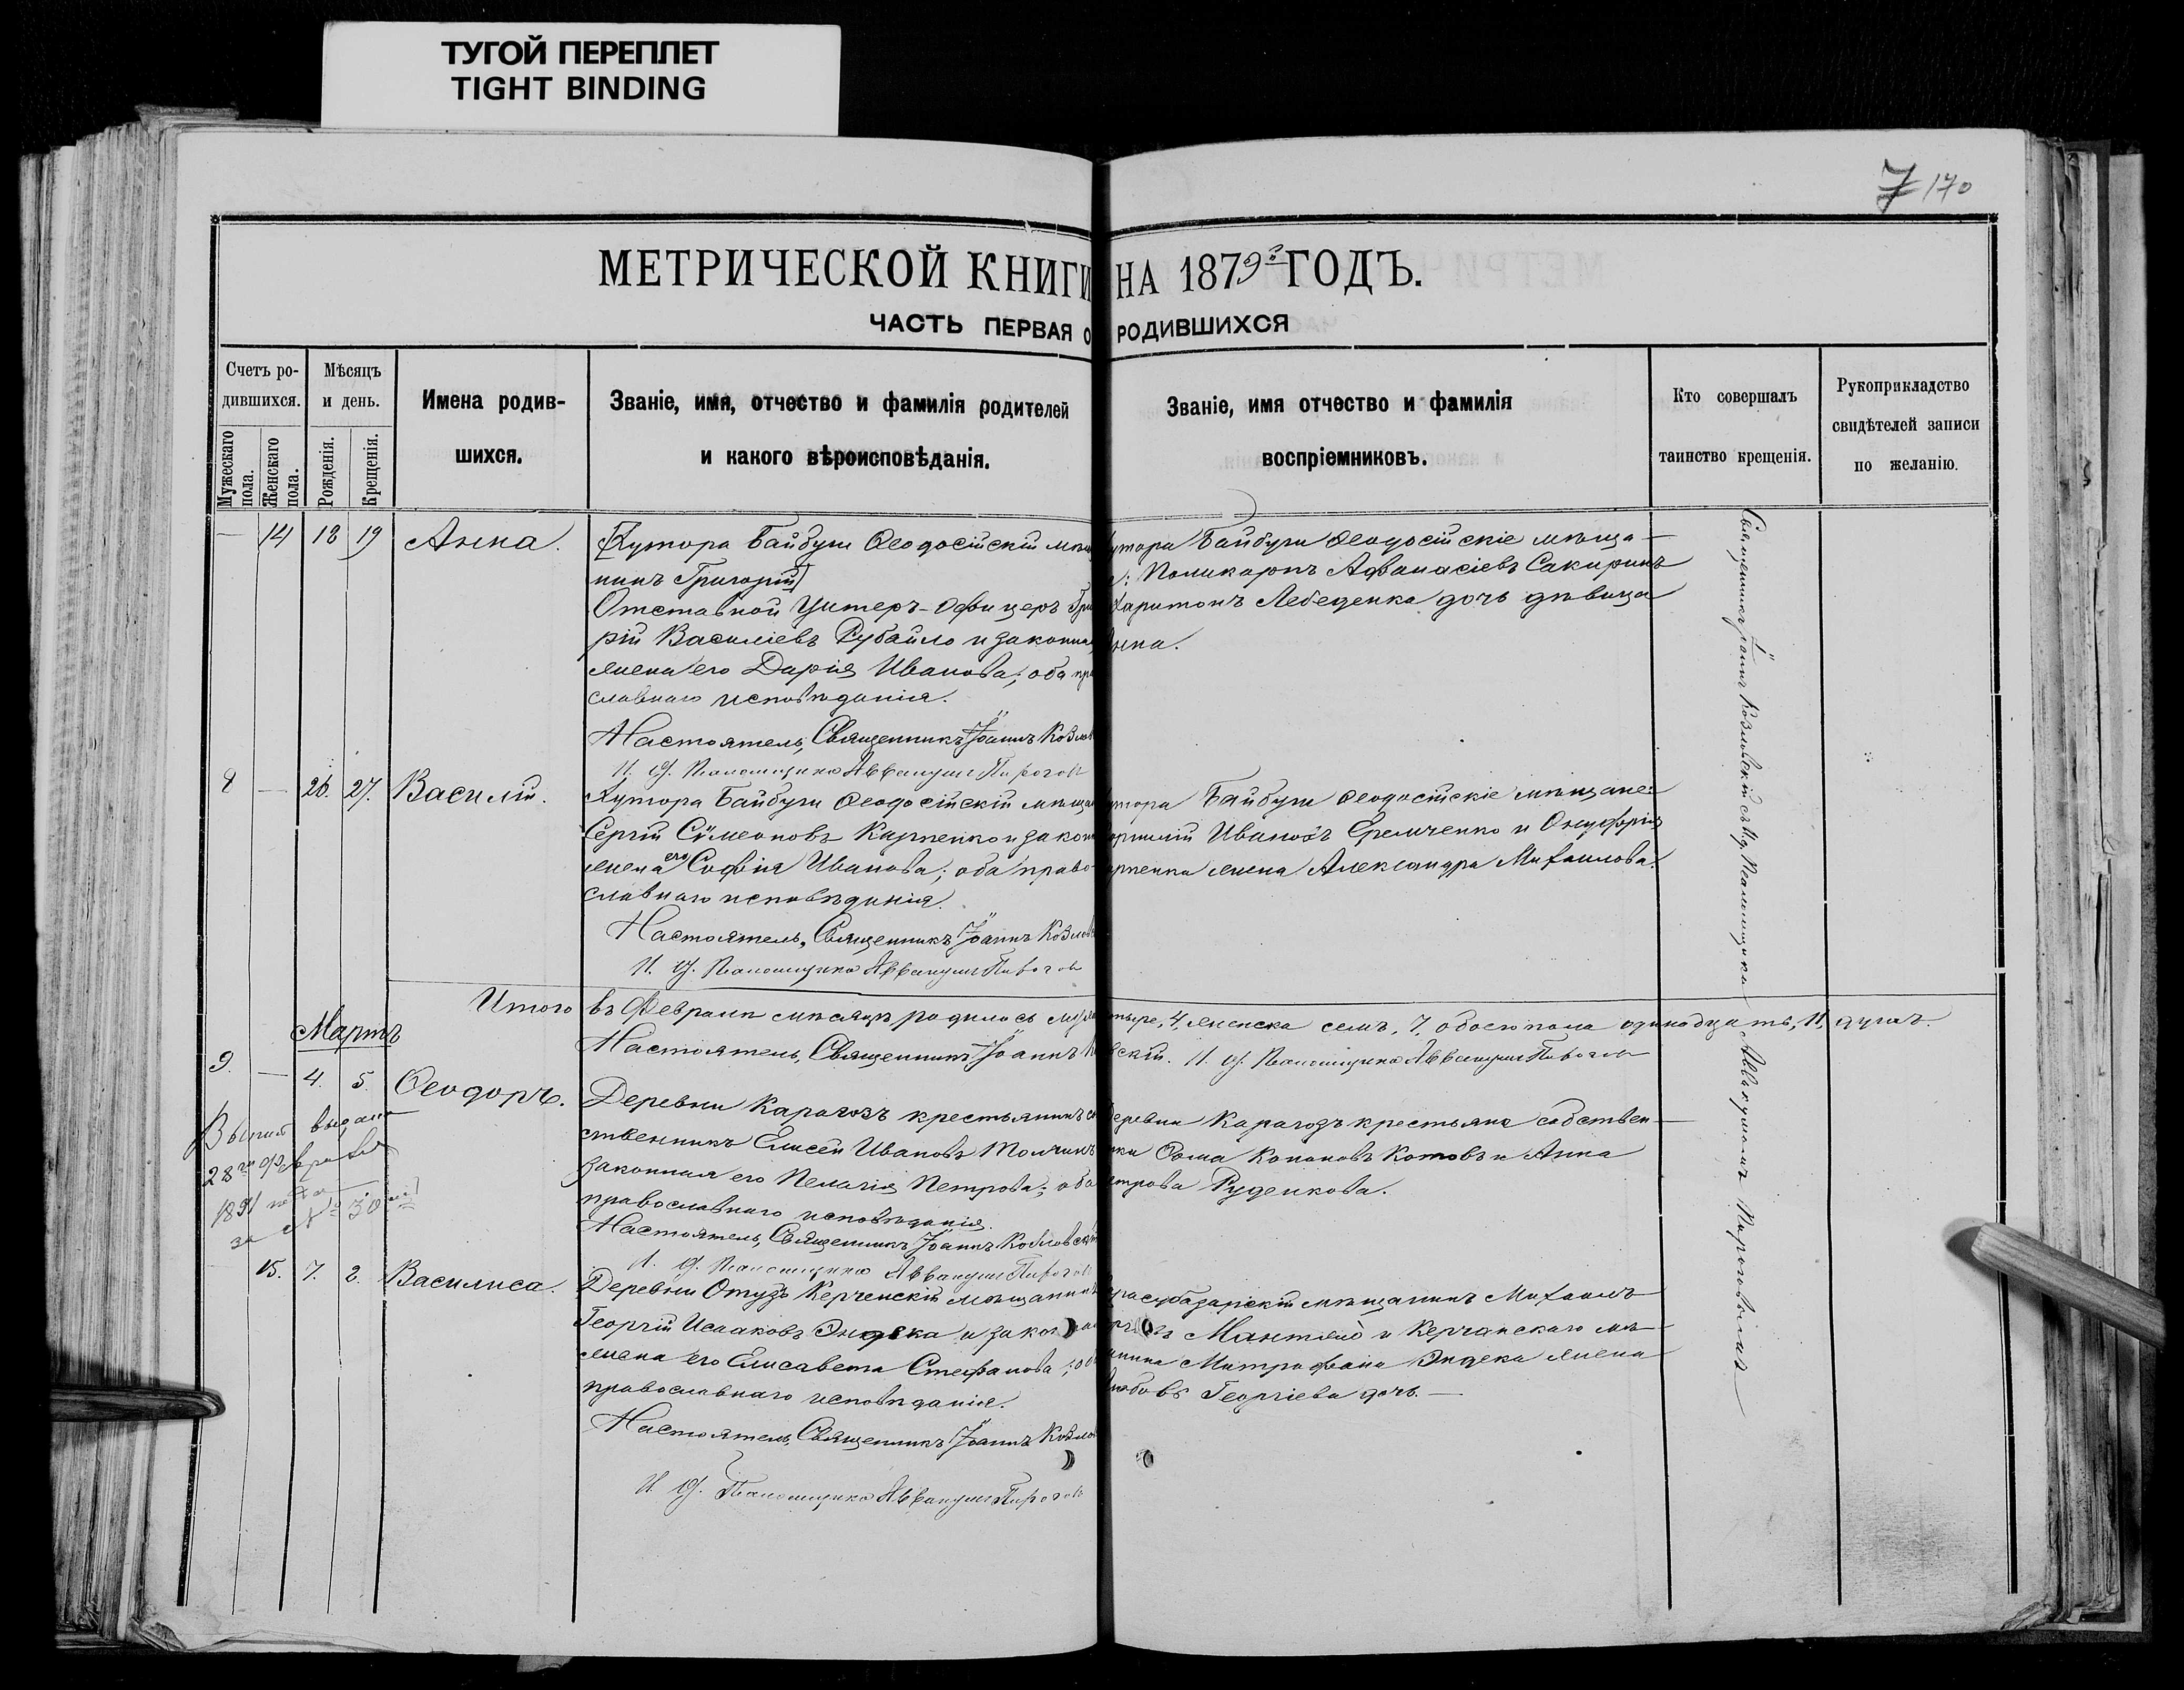 ТУГОЙ ПЕРЕПЛЕТ
TIGHT BINDING
7 170
МЕТРИЧЕСКОЙ КНИГИ НА 1879й ГОДЪ.
ЧАСТЬ ПЕРВАЯ О РОДИВШИХСЯ
Счетъ родившихся.
Мужескаго пола.
Женскаго пола.
Мѣсяцъ и день.
Рожденія.
Крещенія.
Имена родив-
шихся.
Званіе, имя, отчество и фамилія родителей
и какого вѣроисповѣданія.
Званіе, имя отчество и фамилія
воспріемниковъ.
Кто совершалъ
таинство крещенія.
Рукоприкладство
свидѣтелей записи
по желанію.
— 14 18 19 Анна.
Хутора Байбуги Ѳеодосійскій мѣщ
нинъ Григорій
Отставной Унтеръ-Офицеръ Гри
рій Василіевъ Рубайло и законна
жена его Дарія Иванова; оба пра
славнаго исповѣданія.
Настоятель, Священникъ Іоаннъ Козлов
И. д. Псаломщика Аввакумъ Пирогов
утора Байбуги Ѳеодосійскіе мѣща-
: Поликарпъ Аѳанасіевъ Сакиринъ
Харитонъ Лебеденка дочь дѣвица
нна.
8 — 26. 27. Василій.
Хутора Байбуги Ѳеодосійскій мѣща
Сергій Сѵмеоновъ Карпенко и закон
жена его Софія Иванова; оба право-
славнаго исповѣданія.
Настоятель, Священникъ Іоаннъ Козлов
И. д. Псаломщика Аввакумъ Пирогов
утора Байбуги Ѳеодосійскіе мѣщане:
орнилій Ивановъ Еремченко и Онуфрія
рпенка жена Александра Михаилова.
Итого въ Февралѣ мѣсяцѣ родилось муж
тыре, 4, женска семь, 7, обоего пола одинадцать, 11, душъ.
Настоятель, Священникъ Іоаннъ К
вскій. И. д. Псаломщика Аввакумъ Пирогов
Мартъ
9. — 4. 5. Ѳеодоръ.
Деревни Карагозъ крестьянинъ со
ственникъ Елисей Ивановъ Толчинъ
законная его Пелагія Петрова; оба
православнаго исповѣданія.
Настоятель, Священникъ Іоаннъ Козловскі
И. д. Псаломщика Аввакумъ Пирогов
еревни Карагозъ крестьяне собствен-
ики Ѳома Кононовъ Котовъ и Анна
етрова Руденкова.
выдано
28го Февраля
1891
за № 30
15. 7. 8. Василиса.
Деревни Отузъ Керченскій мѣщанинъ
Георгій Исааковъ Индека и закон
жена его Елисавета Стефанова; об
православнаго исповѣданія.
Настоятель, Священникъ Іоаннъ Козлов
И. д. Псаломщика Аввакумъ Пирогов
расубазарскій мѣщанинъ Михаилъ
и Керчанскаго мѣ-
нина Митрофана Индека жена
юбовь Георгіева дочь.
Священникъ Іоаннъ Козловскій съ И. д. Псаломщика Аввакумомъ Пироговымъ